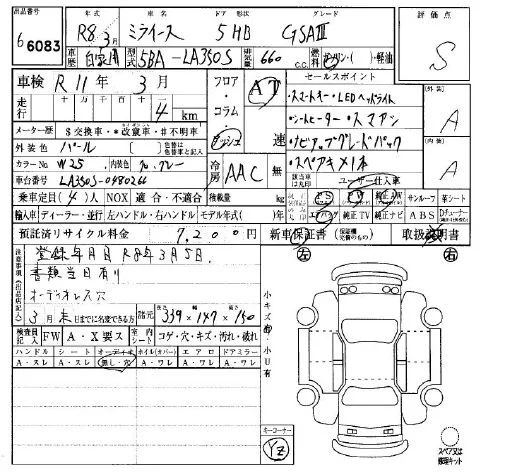 出品番号 年式 車名 ドア 形状 グレード 評価点
6 6083 R8 3月 ミライース 5HB GSAⅢ S
車歴 自家用 型式 5BA-LA350S 排気量 660 c.c. 燃料 ガソリン・( )・軽油
車検 R 11年 3月 フロア・コラム AT セールスポイント
・スマートキー・LEDヘッドライト (外装)
走行 十万 万 千 百 十 4 km ダッシュ 速 ・シートヒーター・スマアシ A
メーター歴 $交換車・*改竄車・#不明車 ・ナビアップグレードパック
外装色 パール 色替は元色記入 ・スペアキメ1本 (内装)
カラーNo W25 内装色 グレー 冷房 AAC 無 該当車は丸印 ユーザー仕入車 A
車台番号 LA350S-0480266
乗車定員 (4)人 NOX 適合・不適合 積載量 kg PS PW 純正AW サンルーフ 革シート
輸入車 ディーラー・並行 左ハンドル・右ハンドル モデル年式( )年 エアバッグ 純正TV 純正ナビ ABS Dチューナー
預託済リサイクル料金 7,200 新車保証書 取扱説明書
注意事項 登録年月日 R8年3月5日 左 右
書類当日有り
(出品店記入) オーディオレス穴
3月末日までに名変できる方 諸元 長さ 339 × 幅 147 × 高さ 150
検査員記入 FW A・X要ス 室内シート コゲ・穴・キズ・汚れ・破れ
ハンドル シート オーディオ ホイル(カバー) エアロ ドアミラー
A・スレ A・スレ 無し・穴 A・ワレ A・ワレ A・ワレ
小キズ 小凹 小U有
キーコーナー
Yz
スペア又は修理キット